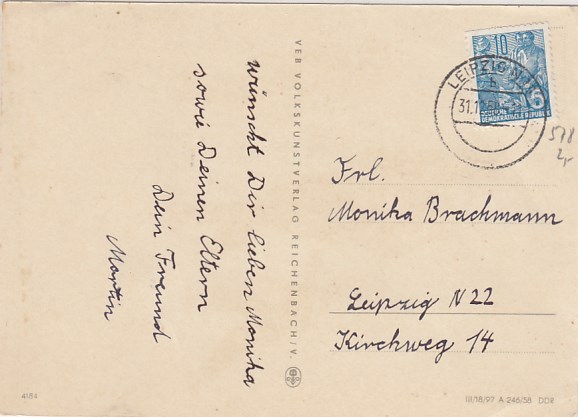 wünscht Dir lieben Monika
sowie Deinen Eltern
Dein Freund
Martin
VEB VOLKSKUNSTVERLAG REICHENBACH/V.
10
DEUTSCHE
DEMOKRATISCHE REPUBLIK
LEIPZIG
31.12.
578
2,-
Frl.
Monika Brachmann
Leipzig N 22
Kirchweg 14
4184
III/18/97 A 246/58 DDR